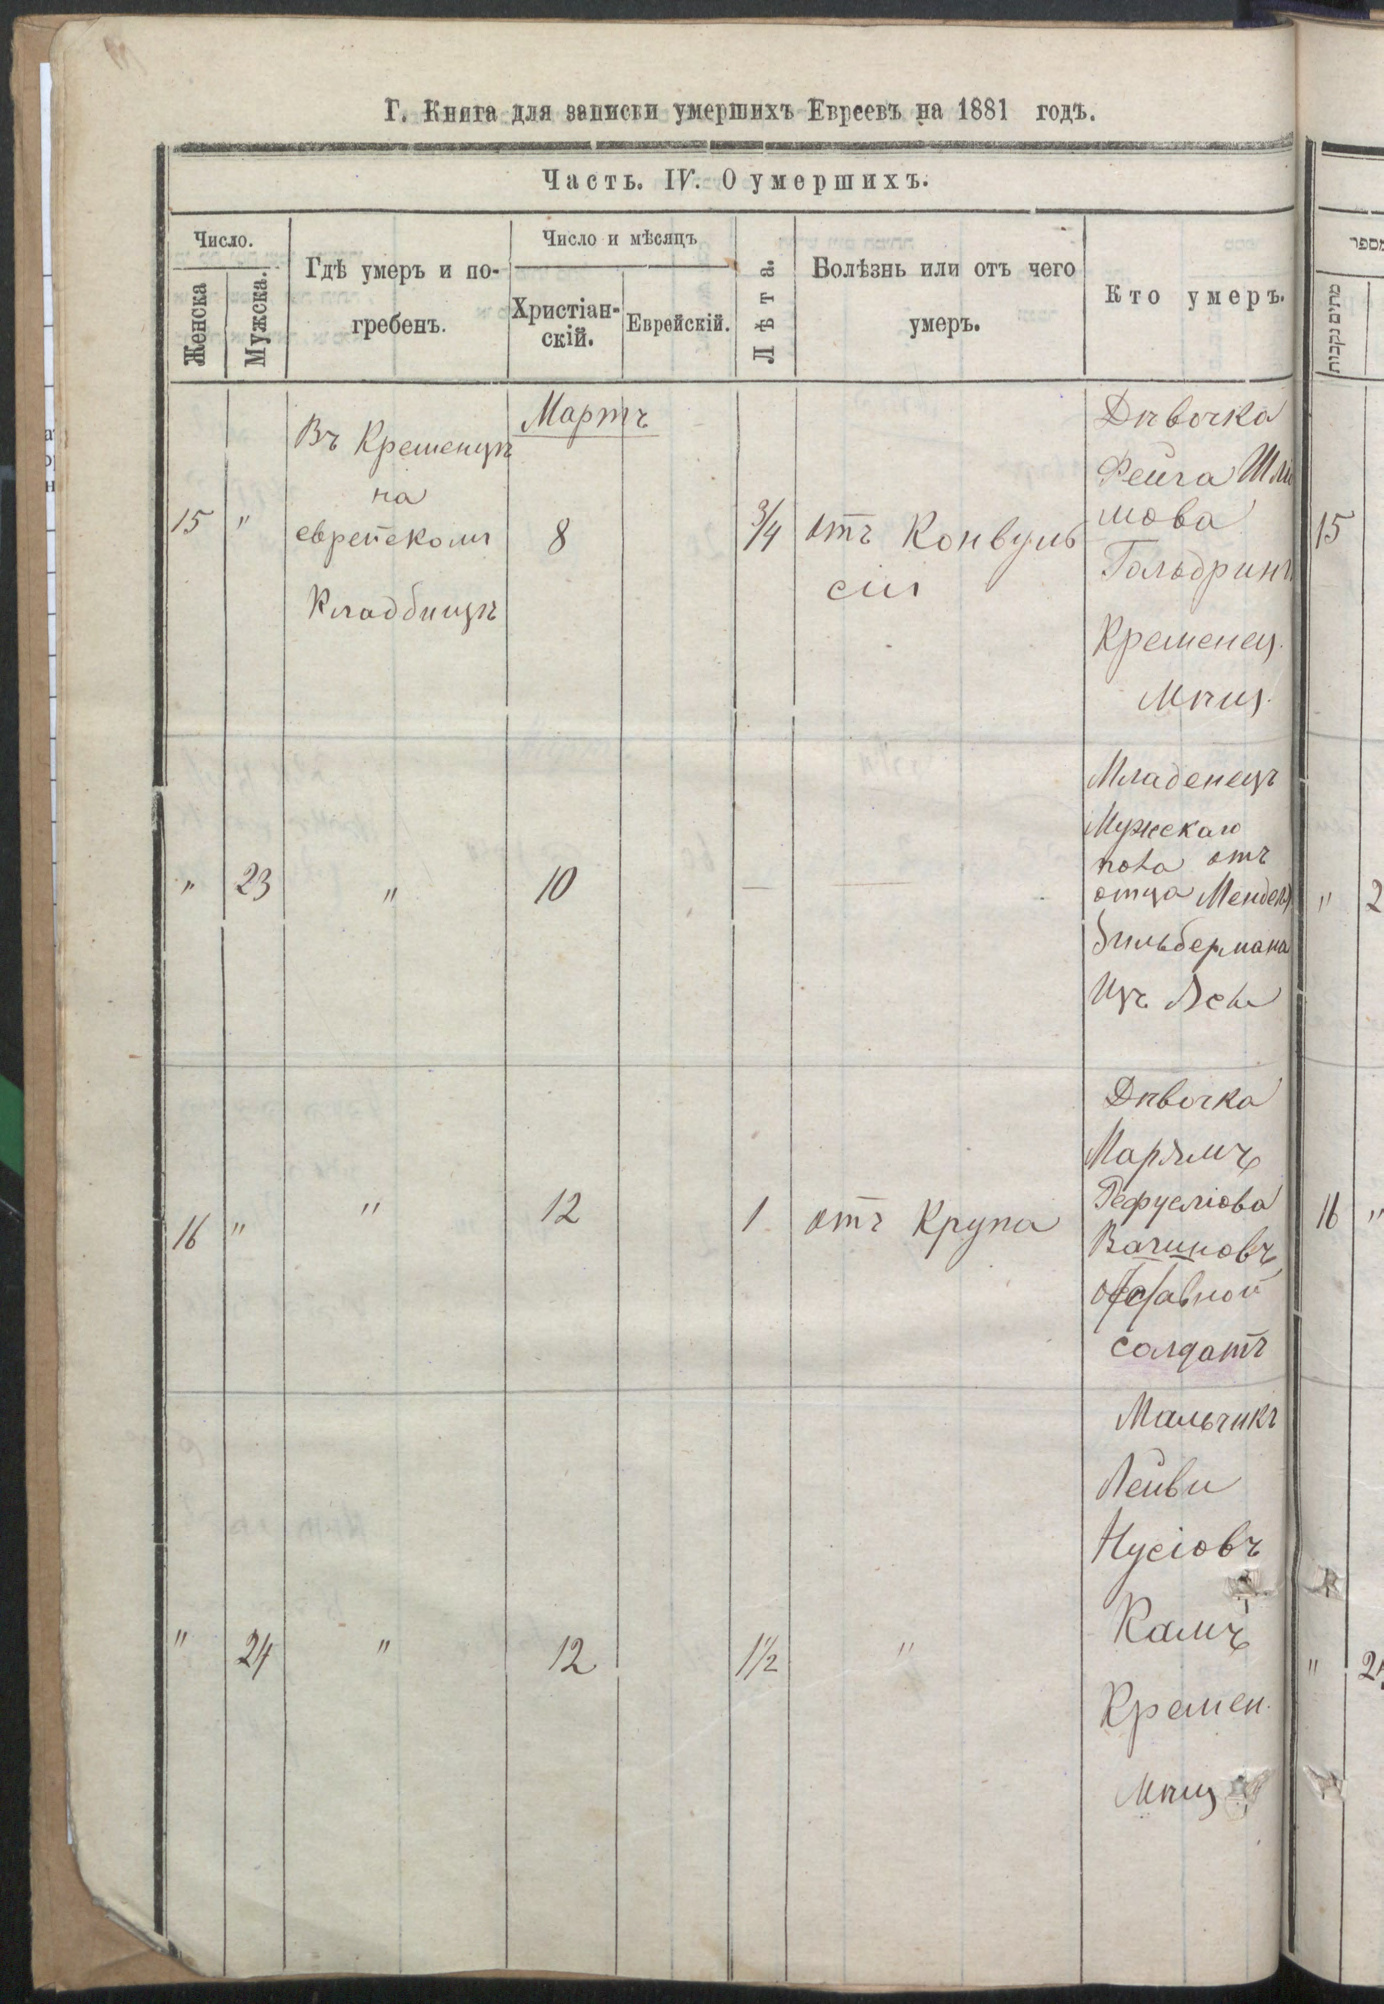 Г. Книга для записки умершихъ Евреевъ на 1881 годъ.
Часть. IV. О умершихъ.
Число.
Женска
Мужска.
Гдѣ умеръ и по-
гребенъ.
Число и мѣсяцъ
Христіан-
скій.
Еврейскій.
Лѣта.
Болѣзнь или отъ чего
умеръ.
Кто умеръ.
15
"
Въ Кременцѣ
на
еврейскомъ
Кладбищѣ
Мартъ
8
3/4
отъ Конвуль
сіи
Дѣвочка
Фейга Шли
мова
Гольдринг
Кременец.
Мѣщ.
"
23
"
10
—
—
Младенецъ
Мужскаго
пола отъ
отца Менделя
Зильбермана
Изъ
16
"
"
12
1
отъ Крупа
Дѣвочка
Марямъ
Вагиновъ
отставной
солдатъ
"
24
"
12
1 1/2
"
Мальчикъ
Лейви
Нусіовъ
Камъ
Кремен.
Мѣщ
מספר
15
"
2
16
"
"
24